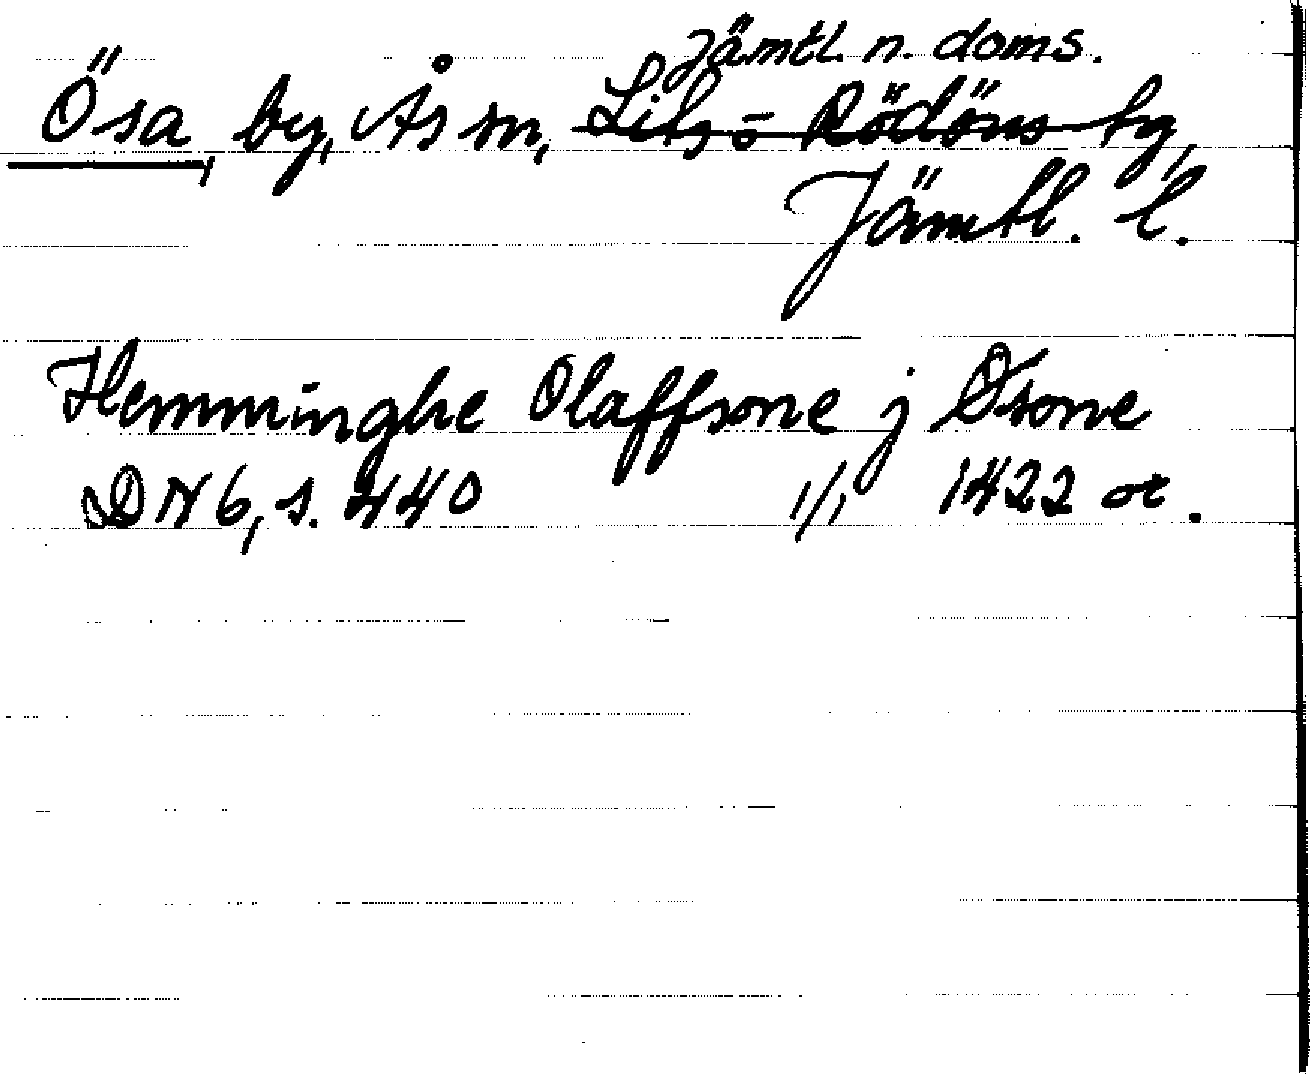 Jämtl. n. doms.
Ösa, by, Ås sn, Lits o Rödöns tg,
Jämtl. l.
Hemminghe Olaffsone j Øsone
DN 6, s. 440 1/1 1422 or.